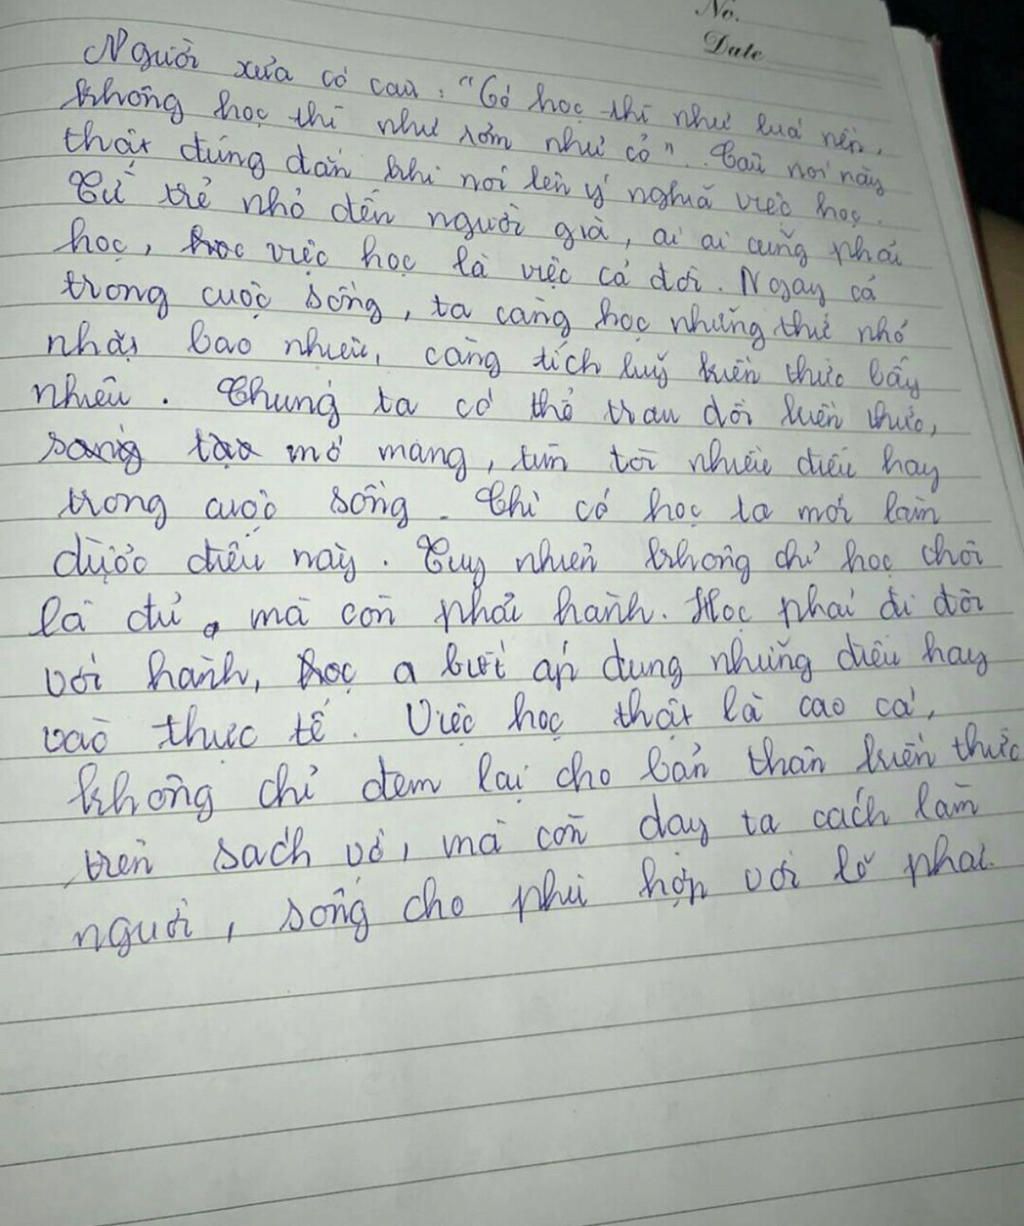 No.
Date
Người xưa có câu: "Có học thì như luá nên,
không học thì như rơm như cỏ". Câu nói này
thật đúng đắn khi nói lên ý nghĩa việc học.
Từ trẻ nhỏ đến người già, ai ai cũng phải
học, học việc học là việc cả đời. Ngay cả
trong cuộc sống, ta càng học những thứ nhỏ
nhặt bao nhiêu, càng tích luỹ kiến thức bấy
nhiêu. Chúng ta có thể trau dồi kiến thức,
sáng tạo mở mang, tìm tòi nhiều điều hay
trong cuộc sống. Chỉ có học ta mới làm
được điều này. Tuy nhiên không chỉ học thôi
là đủ, mà còn phải hành. Học phải đi đôi
với hành, học a biết áp dụng những điều hay
vào thực tế. Việc học thật là cao cả,
không chỉ đem lại cho bản thân kiến thức
trên sách vở, mà còn dạy ta cách làm
người, sống cho phù hợp với lẽ phải.